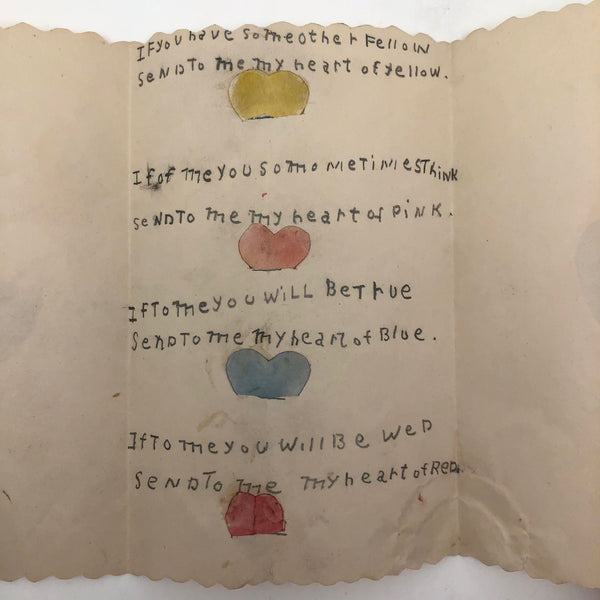 IfyouhaveSomeotherFellow
SendTo me my heart of yellow.
If of me you SomometimesThink
SendTo me my heart of PiNK.
IfTo me you WiLL BeTrue
SendTo me my heart of Blue.
IfTo me you Will Be WeD
SendTo me my heart of ReD.